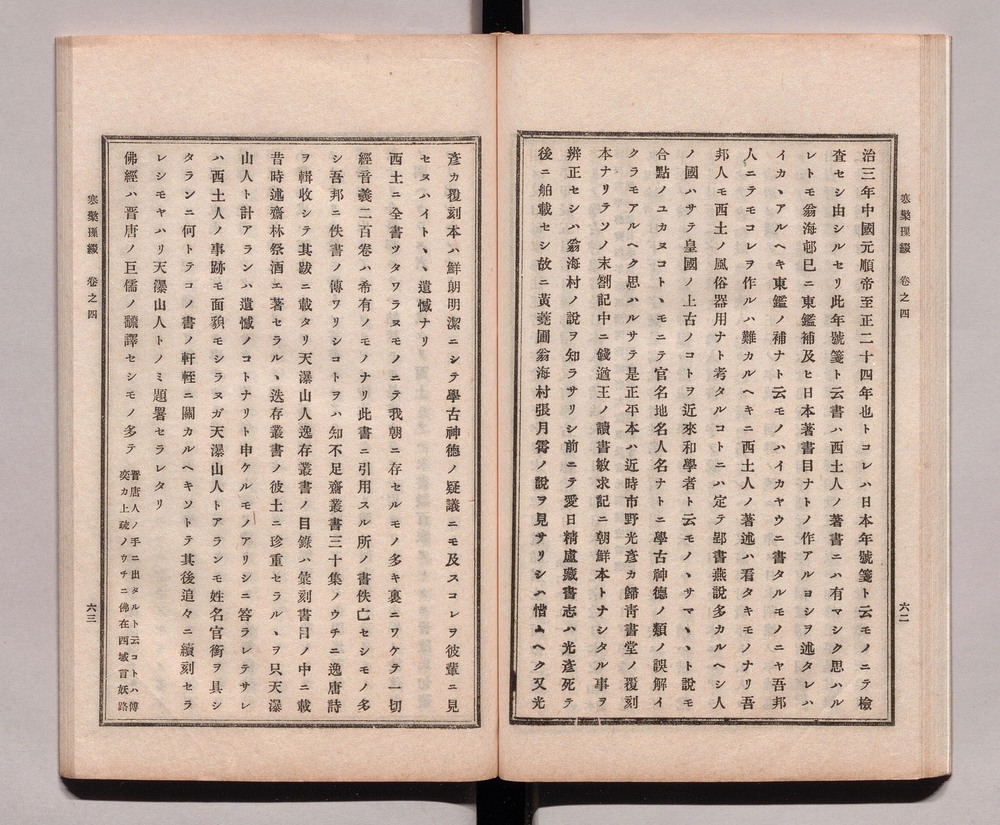 寒檠璅綴 卷之四
六二
治三年中國元順帝至正二十四年也トコレハ日本年號箋ト云モノニテ檢
査セシ由シルセリ此年號箋ト云書ハ西土人ノ著書ニハ有マシク思ハル
レトモ翁海邨已ニ東鑑補及ヒ日本著書目ナトノ作アルヨシヲ述タレハ
イカヽアルヘキ東鑑ノ補ナト云モノハイカヤウニ書タルモノニヤ吾邦
人ニテモコレヲ作ルハ難カルヘキニ西土人ノ著述ハ看タキモノナリ吾
邦人モ西土ノ風俗器用ナト考タルコトニハ定テ郢書燕說多カルヘシ人
ノ國ハサテ皇國ノ上古ノコトヲ近來和學者ト云モノヽサマ〱ト說モ
合點ノユカヌコトヽモニテ官名地名人名ナトニ學古神德ノ類ノ誤解イ
クラモアルヘク思ハルサテ是正平本ハ近時市野光彥カ歸靑書堂ノ覆刻
本ナリテソノ末劄記中ニ錢遒王ノ讀書敏求記ニ朝鮮本トナシタル事ヲ
辨正セシハ翁海村ノ說ヲ知ラサリシ前ニテ愛日精盧藏書志ハ光彥死テ
後ニ舶載セシ故ニ黃蕘圃翁海村張月霄ノ說ヲ見サリシハ惜ムヘク又光
彥カ覆刻本ハ鮮朗明潔ニシテ學古神德ノ疑議ニモ及スコレヲ彼輩ニ見
セヌハイトヽ遺憾ナリ
西土ニ全書ツタワラヌモノニテ我朝ニ存セルモノ多キ裏ニワケテ一切
經音義二百卷ハ希有ノモノナリ此書ニ引用スル所ノ書佚亡セシモノ多
シ吾邦ニ佚書ノ傳ワリシコトヲハ知不足齋叢書三十集ノウチニ逸唐詩
ヲ輯收シテ其跋ニ載タリ天瀑山人逸存叢書ノ目錄ハ彙刻書目ノ中ニ載
昔時述齋林祭酒エ著セラルヽ迭存叢書ノ彼土ニ珍重セラルヽヲ只天瀑
山人ト計アランハ遺憾ノコトナリト申ケルモノアリシニ答ラレテサレ
ハ西土人ノ事跡モ面貌モシラヌガ天瀑山人トアランモ姓名官銜ヲ具シ
タランニ何トテコノ書ノ軒輊ニ關カルヘキソトテ其後追々ニ續刻セラ
レシモヤハリ天瀑山人トノミ題署セラレタリ
佛經ハ晋唐ノ巨儒ノ飜譯セシモノ多テ
晋唐人ノ手ニ出タルト云コトハ傅
奕カ上疏ノウチニ佛在西域言妖路
寒檠璅綴 卷之四
六三